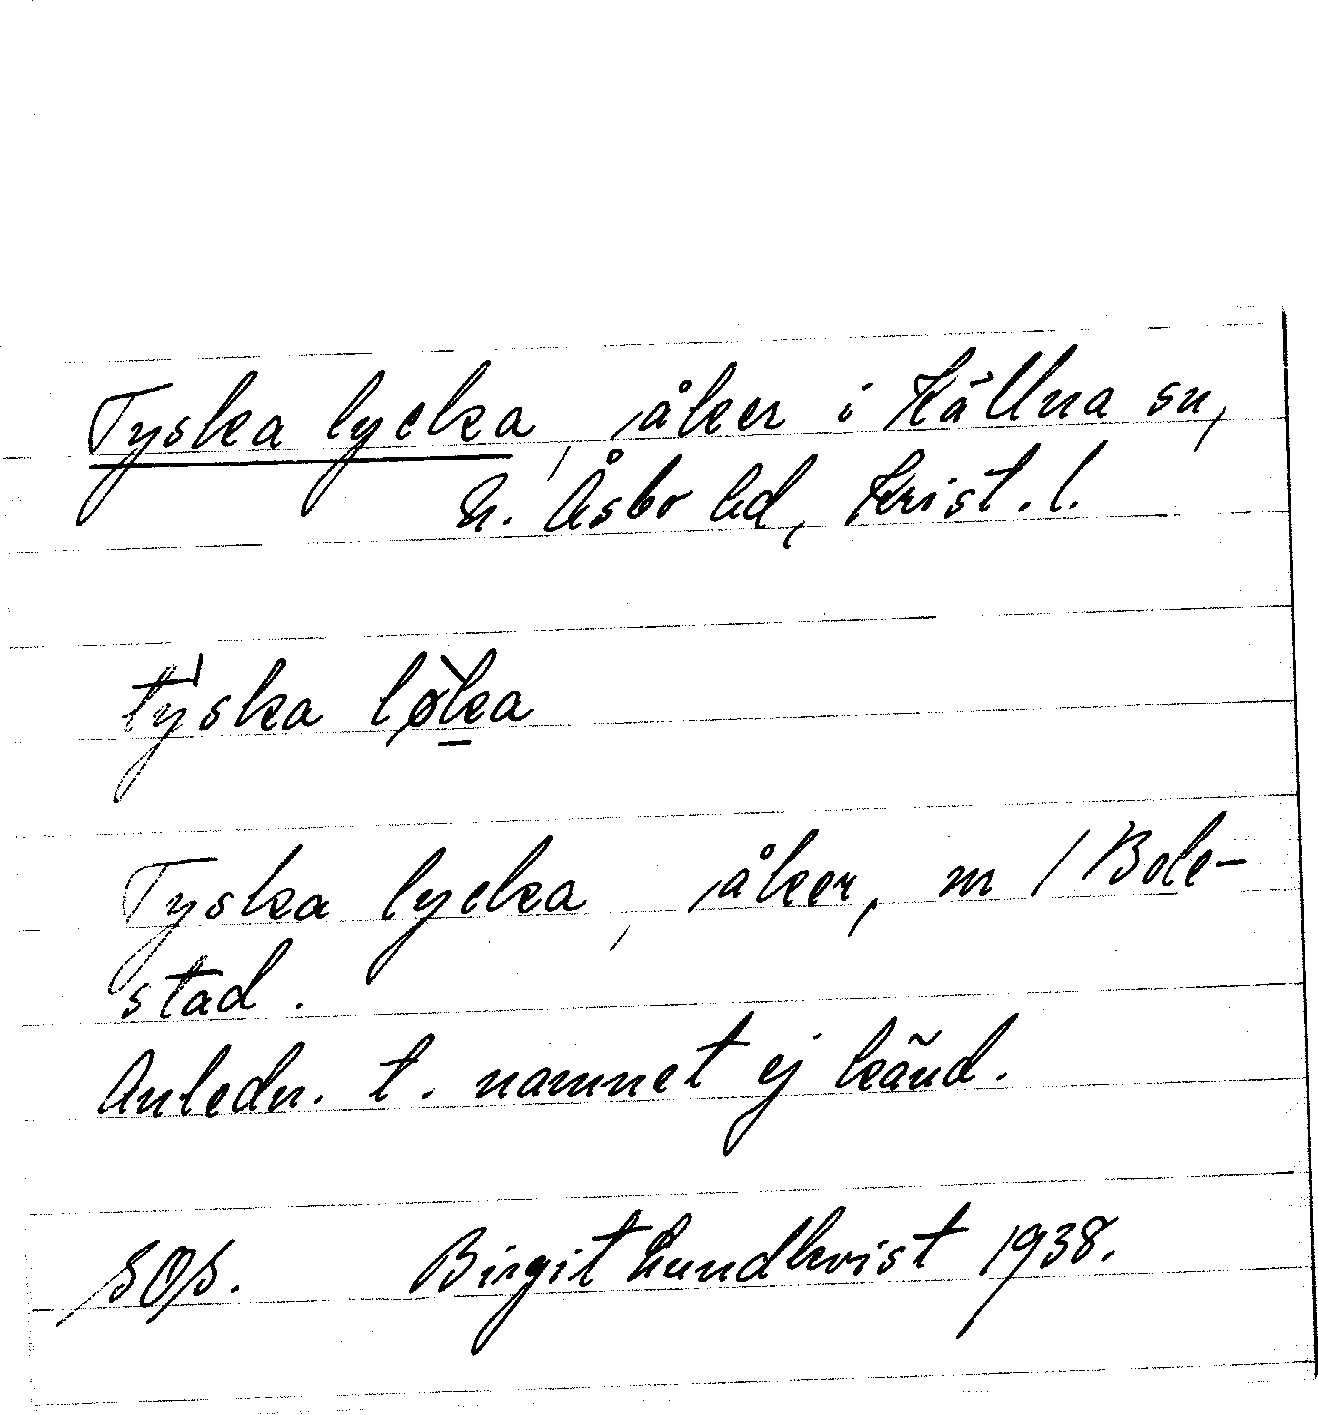 Tyska lycka, åker i Källna sn,
N. Åsbo hd, Krist. l.
ty̍ska lø̀ḵa
Tyska lycka, åker, nr 1 Bole-
stad.
Anledn. t. namnet ej känd.
SOS. Birgit Lundkvist 1938.